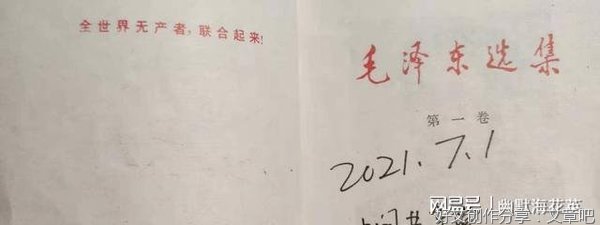 全世界无产者,联合起来!
毛泽东选集
第一卷
2021.7.1
网易号 | 幽默海花茶
好文创作分享:文章吧